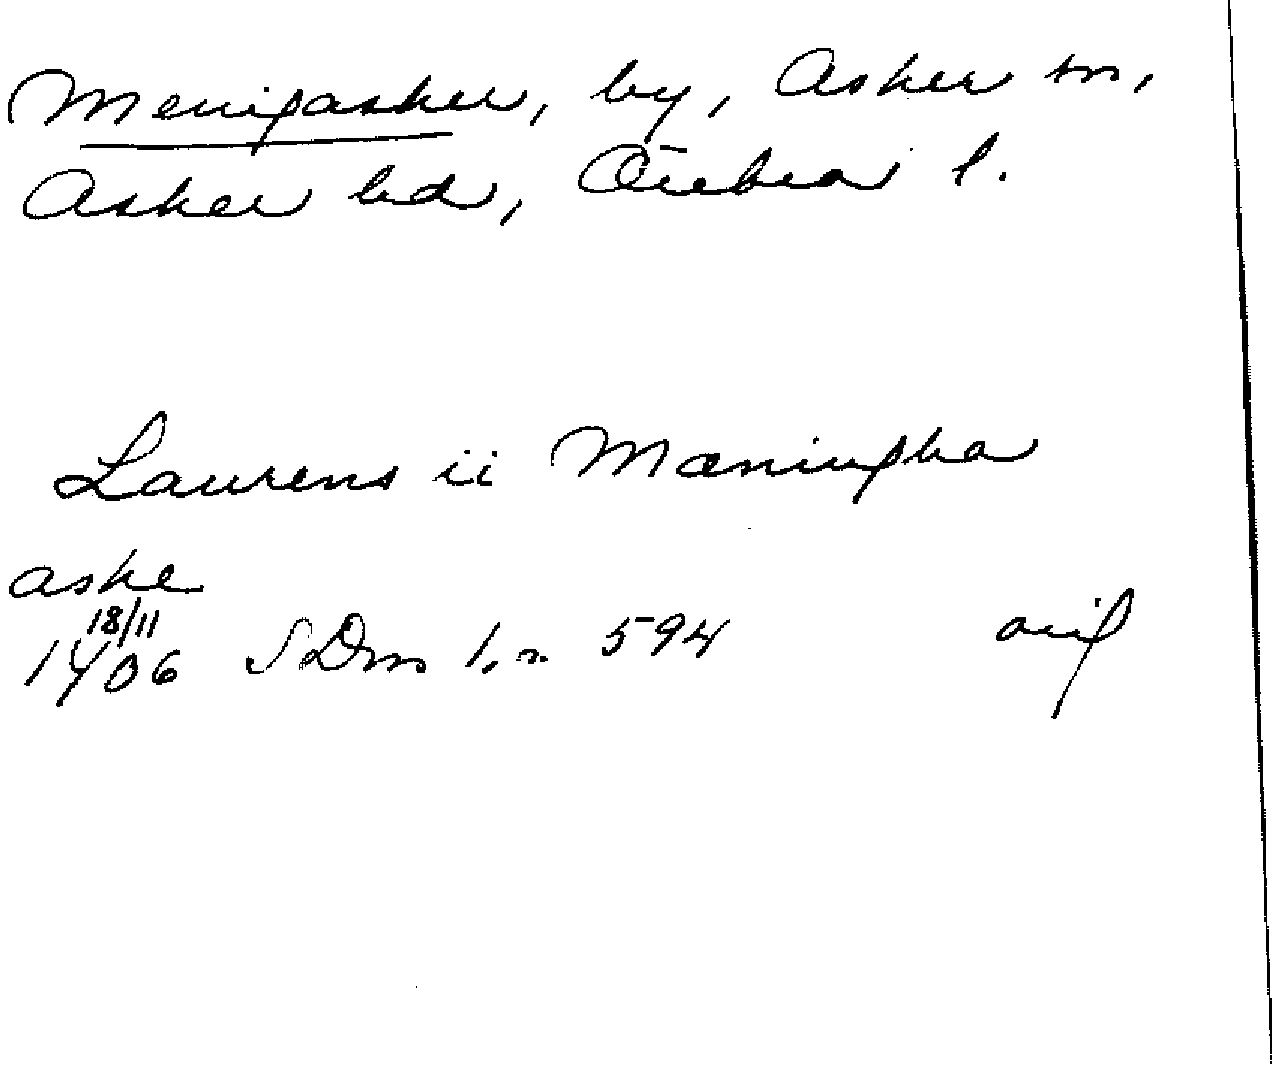 Menigasker, by, Asker sn,
Asker hd, Örebro l.
Laurens ii Mæningha
aske
18/11
1406 SDns 1, n. 594 orig